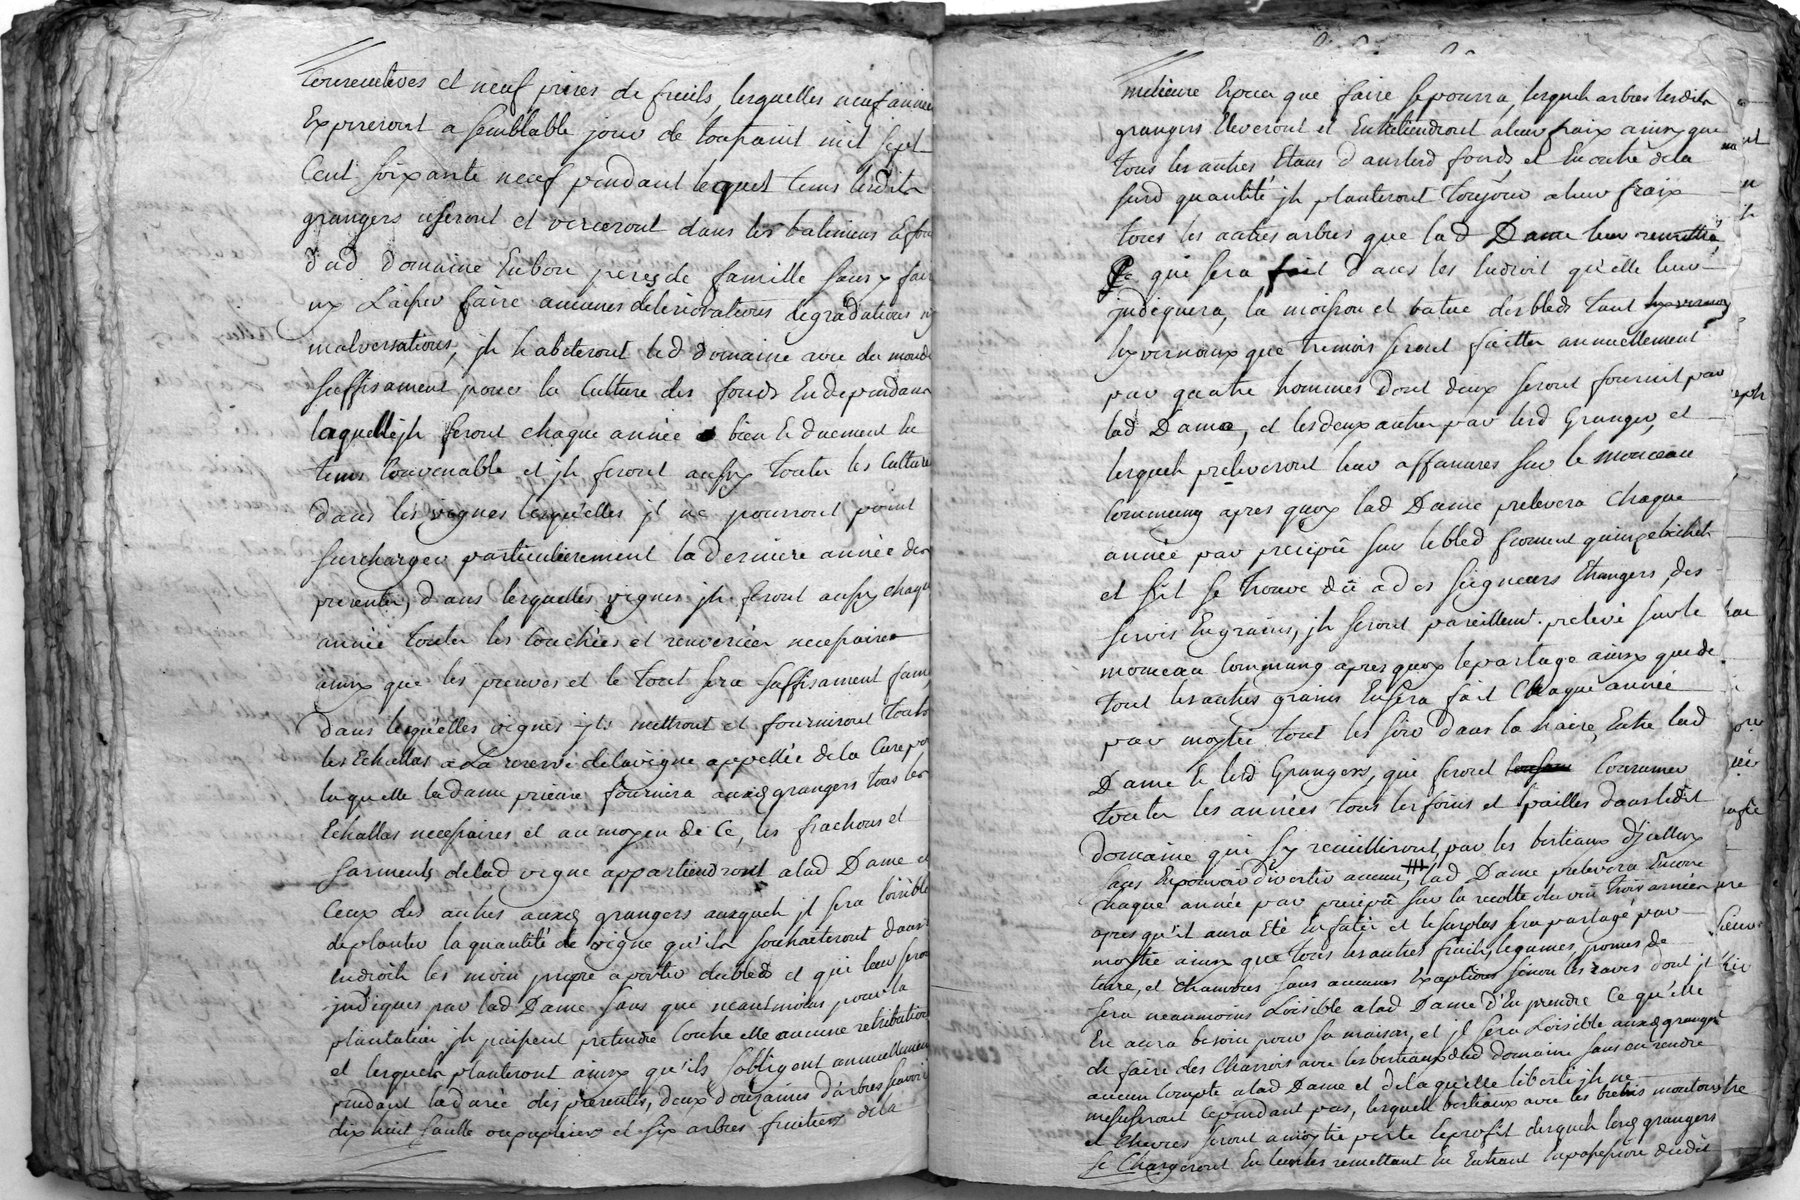 consecutives et neuf prises de fruits, lesquelles neuf année
Expireront a semblable jour de toussaint mil sept
Cent soixante neuf pendant lequel tems lesdits
grangers useront et verceront dans les batimens et fon
dud domaine En bon peres de famille sans y fair
ny Laisser faire aucunes déteriorations degradations ny
malversations, jls habiteront led domaine avec du monde
suffisament pour la Culture des fonds Endependans
laquelle jls feront chaque année bien et duement En
tems Convenable et jls feront aussy toutes les Culture
dans les vignes lesquelles jls ne pourront point
surcharger particulierement la derniere année des
presentes, dans lesquelles vignes jls feront aussy chaque
année toutes les couchées et renversées necessaires
ainsy que les preuves et le tout sera suffisament fumé
dans lesquelles vignes jls mettront et fourniront toutes
les Echallas a La reserve de la vigne appellée de la Cure pour
laquelle lad dame prieure fournira auxd grangers tous les
Echallas necessaires et au moyen de Ce, les frachons et
sarments de lad vigne appartiendront a lad Dame et
Ceux des autres auxd grangers auxquels jl sera loisible
de planter la quantité de vigne qu'ils souhaiteront dans
endroits les moin propre a porter du bled et qui leur seront
jndiques par lad Dame sans que neantmoins pour la
plantation jls puissent pretendre Contre elle aucune retribution
et lesquels planteront ainsy qu'ils s'obligent annuellement
pendant la durée des presentes, deux douzaines d'arbres scavoir
dix huit saulle ou peupliers et six arbres fruitiers de la
meilleure Espece que faire se pourra, lesquels arbres lesdits
grangers Eleveront et Entretiendront a leur fraix ainsy que
tous les autres Etans dans lesd fonds et En outre de la
susd quantité jls planteront toujour a leur fraix
tous les autres arbres que lad Dame leur remettra
Ce qui sera fait dans les Endroit qu'elle leur
jndiquera, la moisson et batue des bleds tant
hyvernaux que tremois seront faittes annuellement
par quatre hommes dont deux seront fournit par
lad Dame, et les deux autres par lesd Granger, et
lesquels preleveront leur affanures sur le monceau
Commung apres quoy lad Dame prelevera Chaque
année par precipû sur le bled froment quinze bichets
et s'il se trouve dû a des seigneurs Etrangers des
servis En grains, jls seront pareillemt. prelevé sur le
monceau Commung apres quoy le partage ainsy que de
tout les autres grains En sera fait Chaque année
par moytié tout les soir dans la haire, Entre lad
Dame et lesd Grangers, qui feront Consumer
toutes les années tous les foins et pailles dans ledit
domaine qui s'y recuilliront par les bestiaux d'jcelluy
sans En pouvoir divertir aucun, lad Dame prelevera Encore
chaque année par precipû sur la recolte du vin trois années
apres qu'il aura Eté En fûtér et le surplus sera partagé par
moytié ainsy que tous les autres fruits, legumes, pomes de
terre, et chanvres sans aucunes Exceptions sinon les raves dont jl
sera neanmoins Loisible a lad Dame d'En prendre Ce qu'elle
En aura besoin pour sa maison, et jl sera Loisible auxd grangers
de faire des Charrois avec les bestiaux dud domaine sans en rendre
aucun Compte a lad Dame et de laquelle liberté jls ne
mesuseront cependant pas, lesquels bestiaux avec les brebis moutons
et Chevres seront a moytié perte et profit desquels lesd grangers
se Chargeront En leur les remettant En Entrant En possession dudit